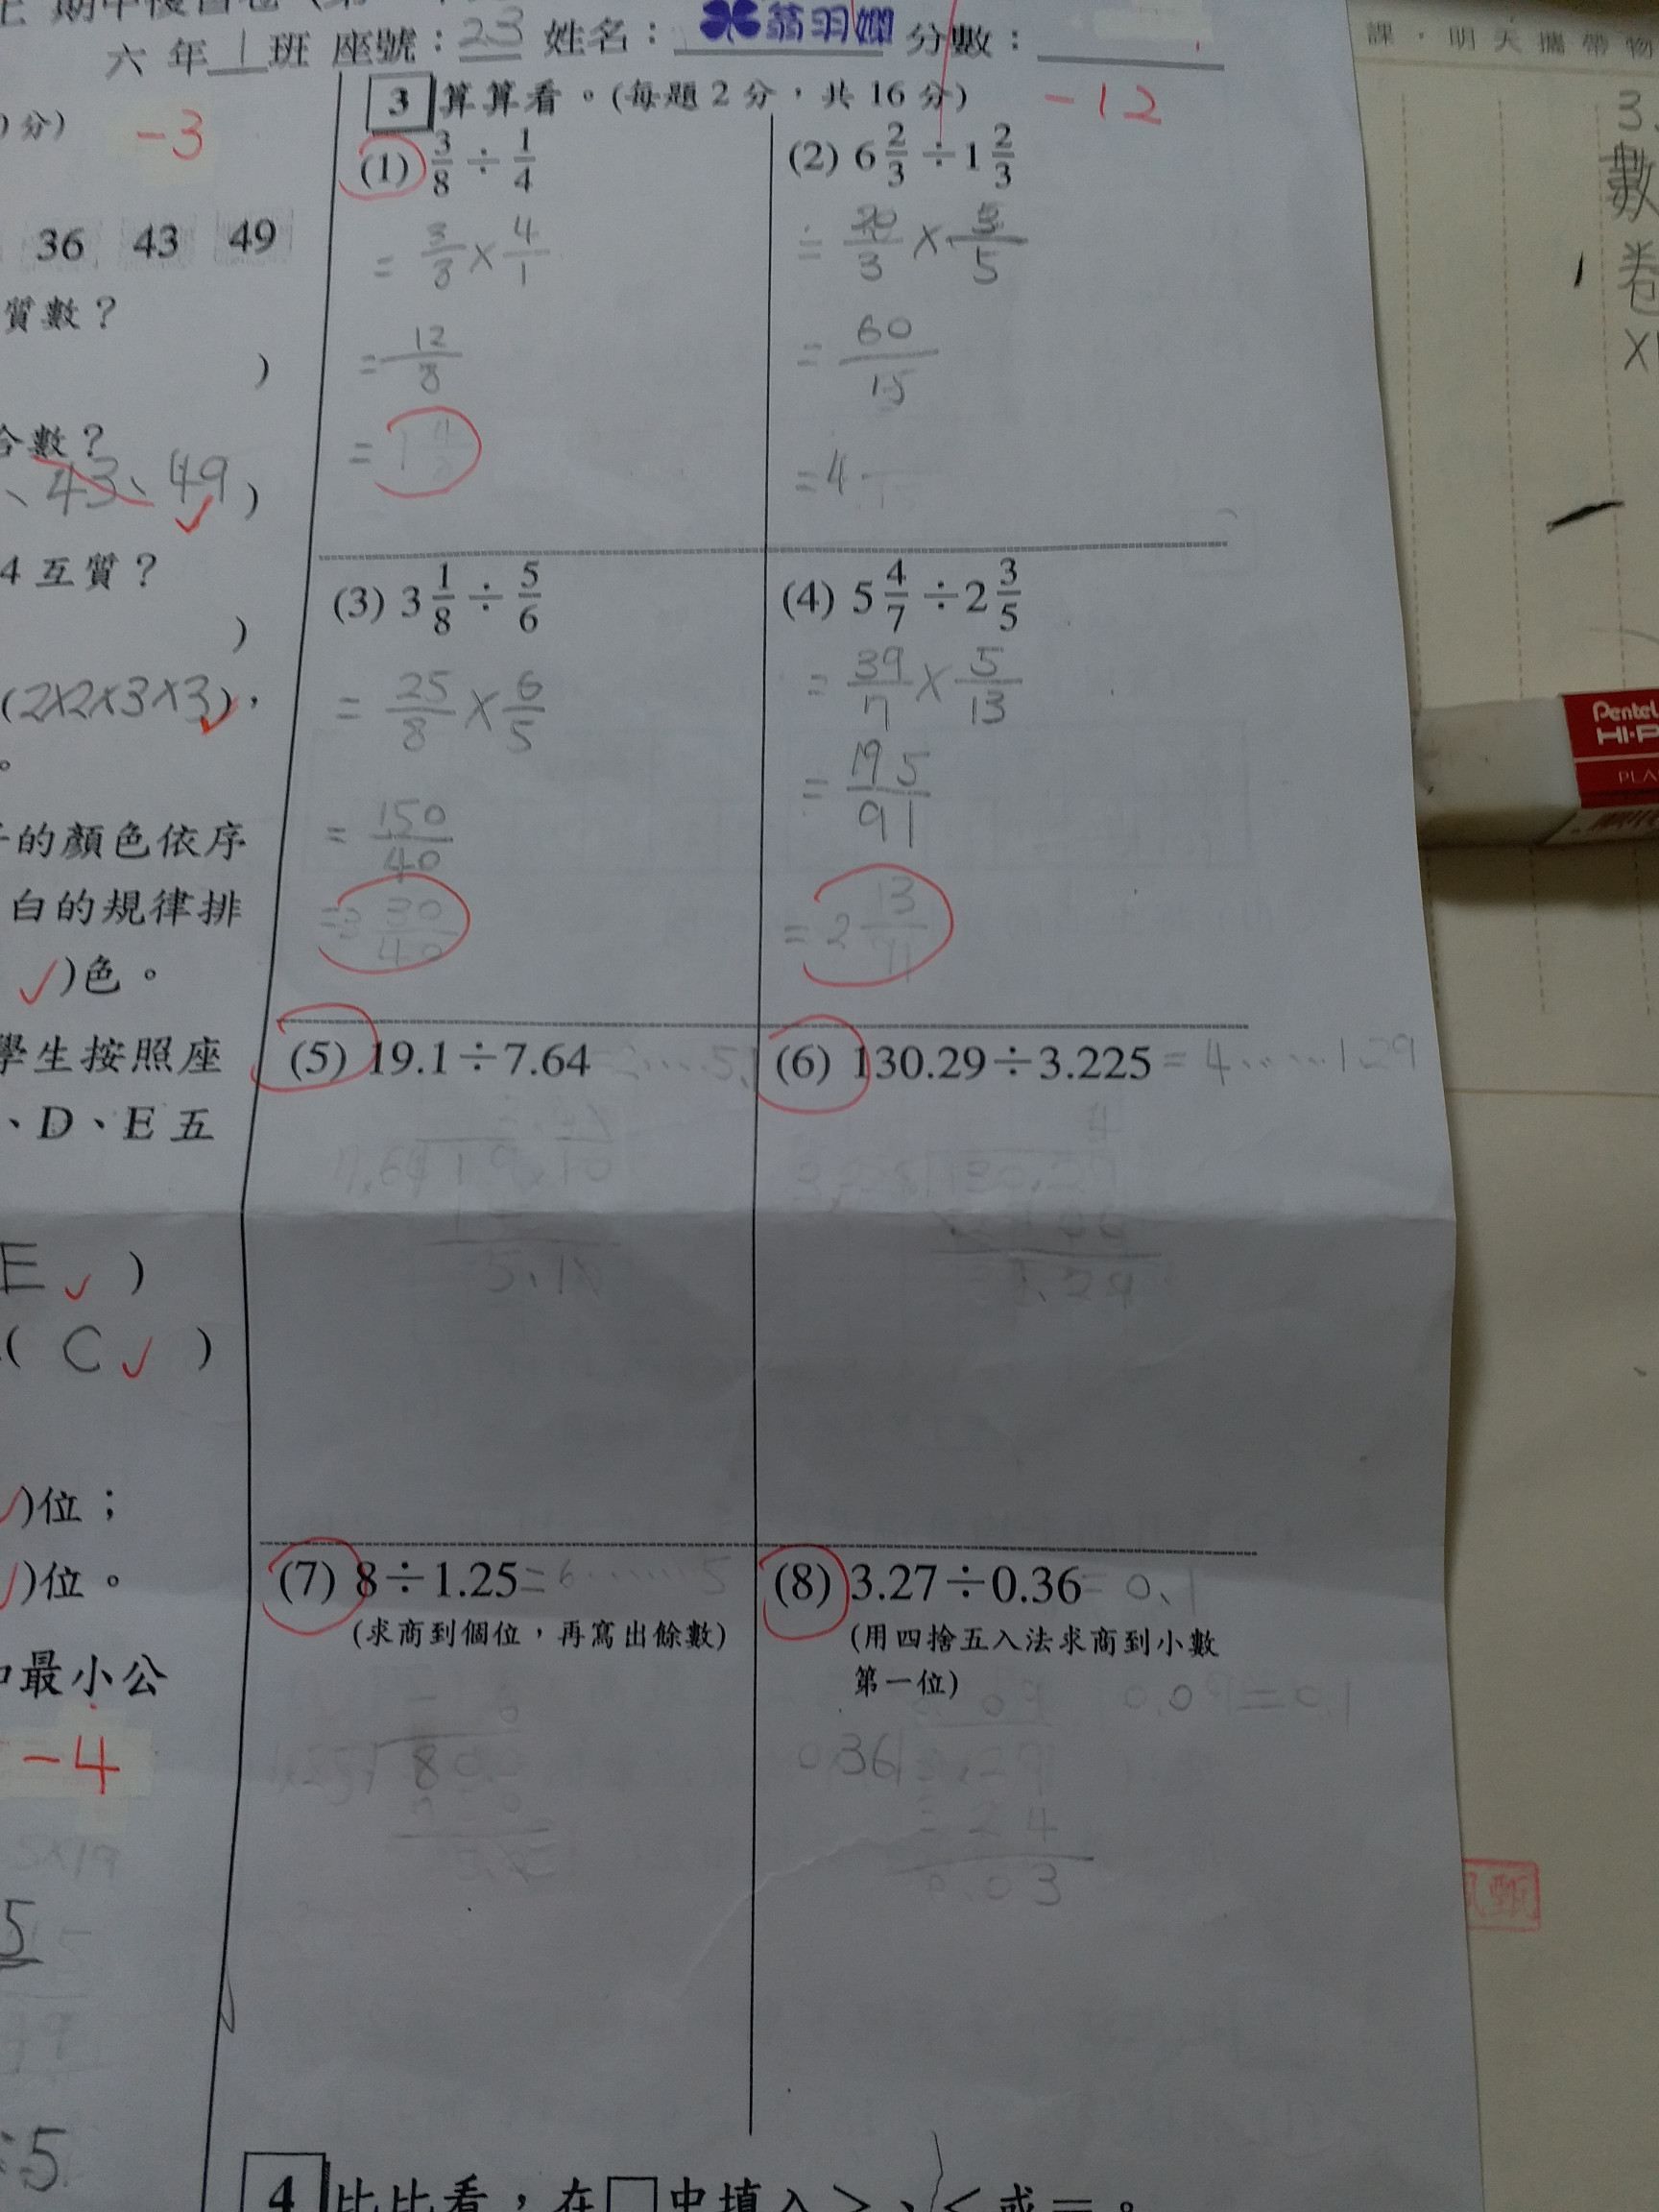 六年1班 座號：23 姓名：翁羽嫻 分數：
課．明天攜帶物
分) -3
36 43 49
質數？
)
合數？
、43、49)
4互質？
)
(2×2×3×3)，
。
的顏色依序
白的規律排
)色。
學生按照座
、D、E五
E )
( C )
)位；
)位。
最小公
-4
5×19
5
÷5
3 算算看。(每題2分，共16分) -12
(1) 3/8 ÷ 1/4
= 3/8 × 4/1
= 12/8
= 1
(2) 6 2/3 ÷ 1 2/3
= 20/3 × 3/5
= 60/15
= 4
(3) 3 1/8 ÷ 5/6
= 25/8 × 6/5
= 150/40
= 3 30/40
(4) 5 4/7 ÷ 2 3/5
= 39/7 × 5/13
= 195/91
= 2 13/91
(5) 19.1÷7.64
(6) 130.29÷3.225 = 4……1.29
4
1.29
(7) 8÷1.25=6……5
(求商到個位，再寫出餘數)
80
(8) 3.27÷0.36=0.1
(用四捨五入法求商到小數
第一位)
0.09=0.1
0.36
3 24
0.03
4 比比看，在□中填入＞、＜或＝。
3.
數
卷
Pentel
HI-P
PLA